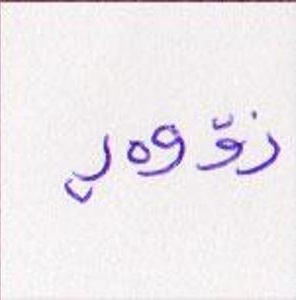 زۆوەڕ